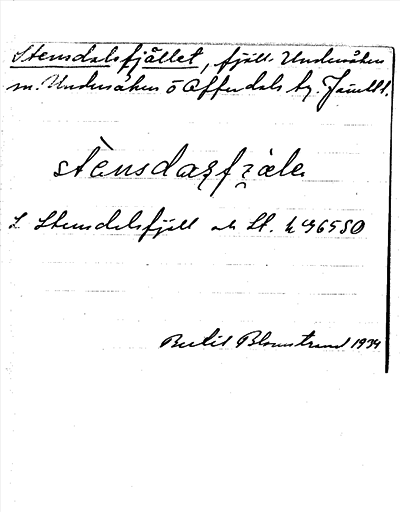 Stensdalsfjället, fjäll. Undersåkers
sn. Undersåkers o Offerdals tg. Jämtl l.
stensdaʒfjæle
L Stensdalsfjäll
Bertil Blomstrand 1934